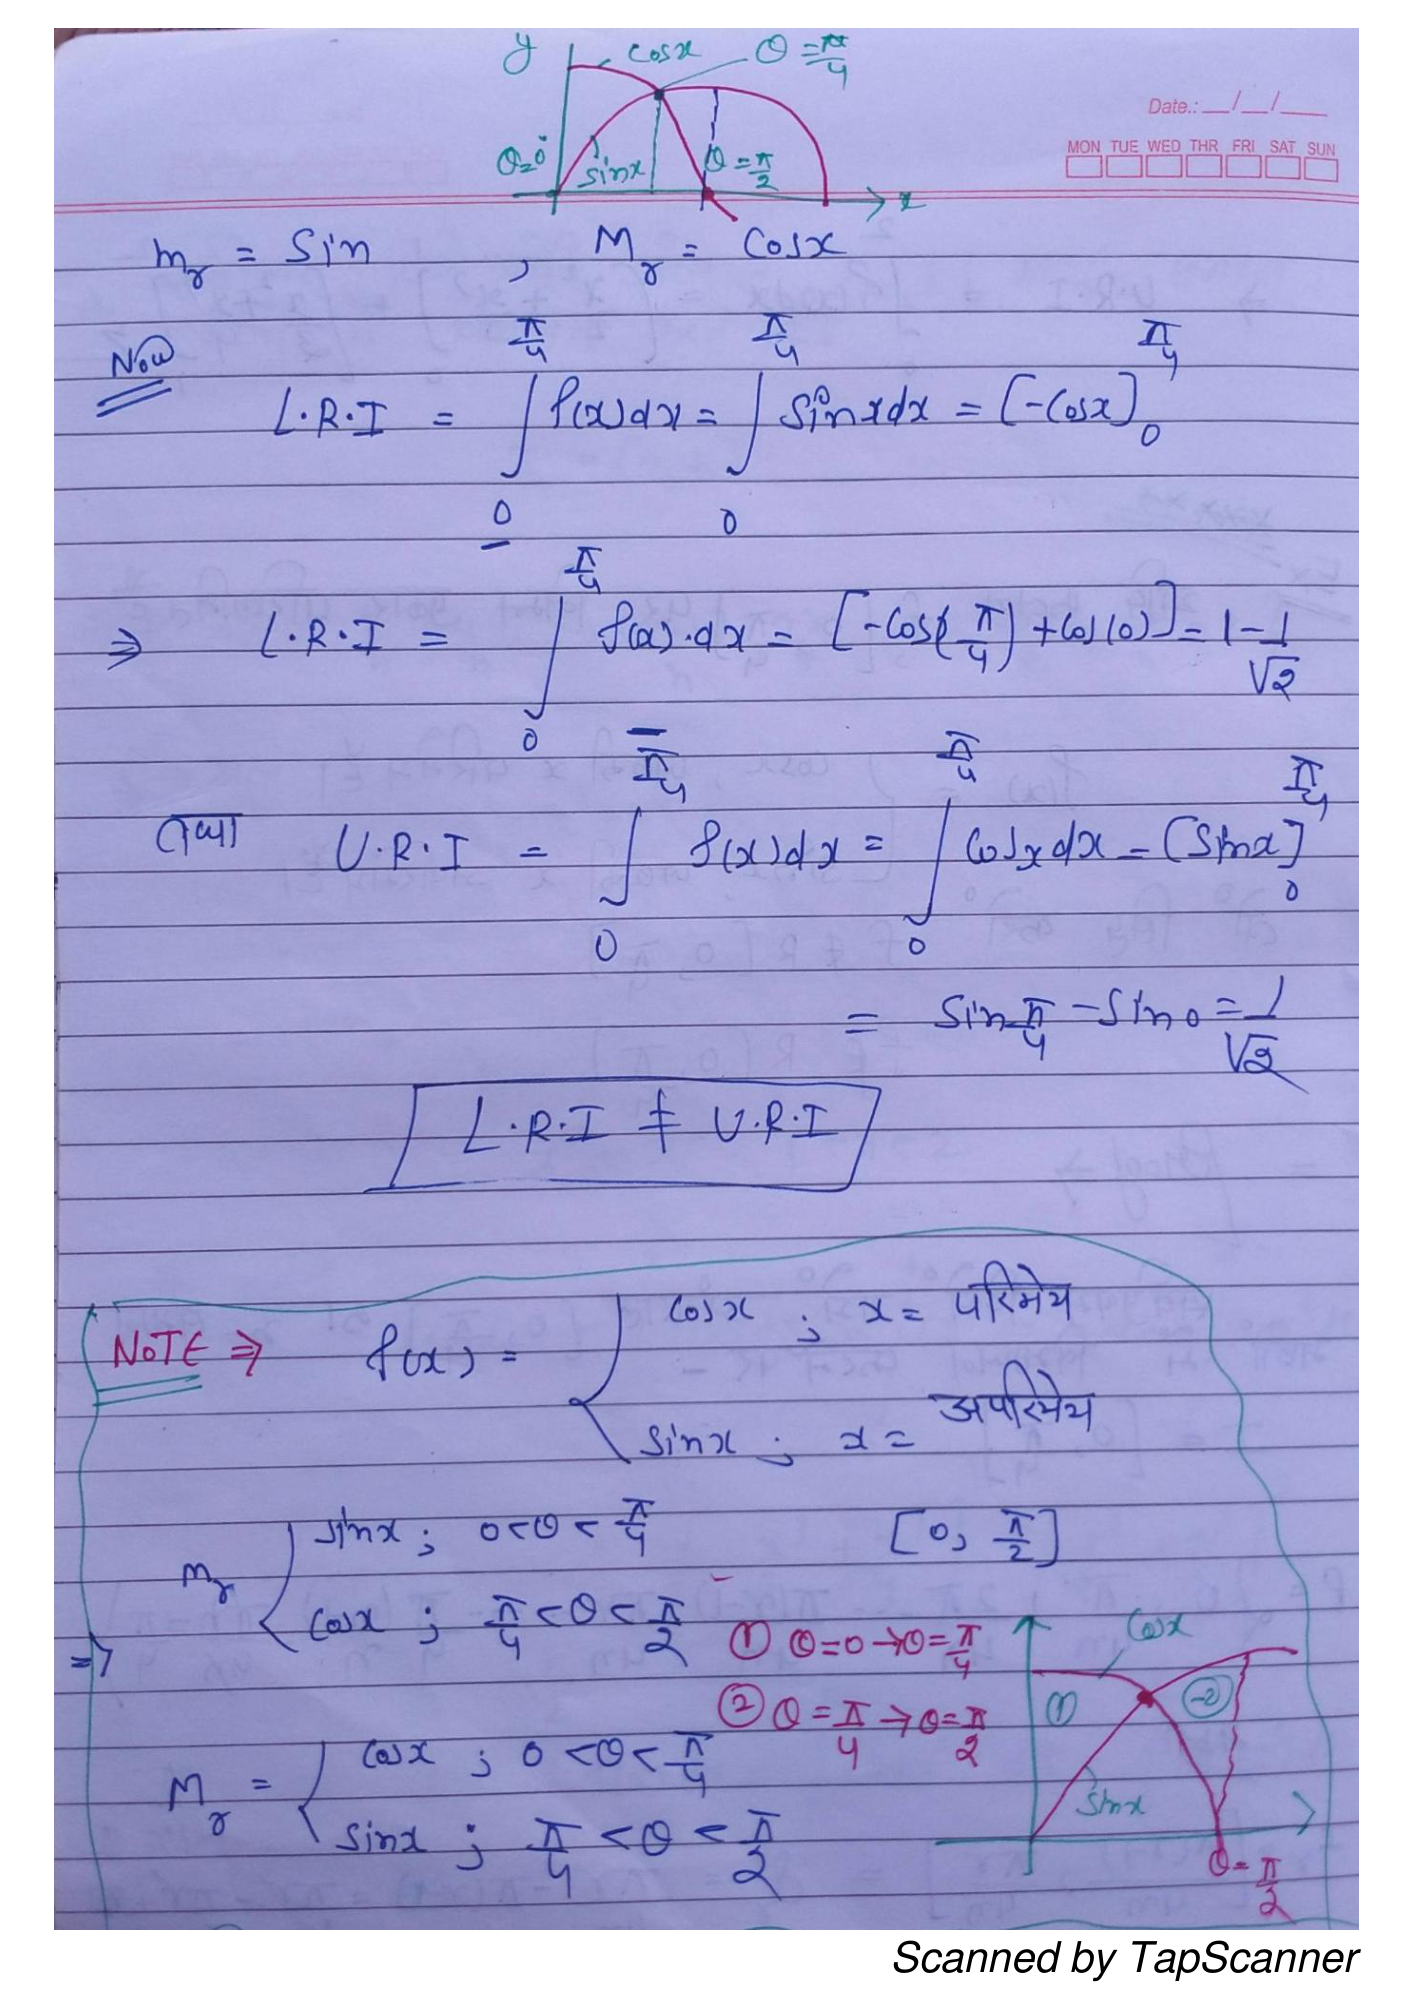 y cosx θ = π/4
Date.: __/__/___
MON TUE WED THR FRI SAT SUN
θ=0 sinx θ = π/2 x
m_r = Sin , M_r = Cosx
Now
L.R.I = ∫_0^{π/4} f(x)dx = ∫_0^{π/4} Sinxdx = [-Cosx]_0^{π/4}
⇒ L.R.I = ∫_0^{π/4} f(x).dx = [-Cos(π/4) + Cos(0)] = 1 - 1/√2
तथा U.R.I = ∫_0^{π/4} f(x)dx = ∫_0^{π/4} Cosxdx = [Sinx]_0^{π/4}
= Sin π/4 - Sin 0 = 1/√2
L.R.I ≠ U.R.I
NOTE ⇒ f(x) = { cosx ; x = परिमेय
sinx ; x = अपरिमेय
m_r { sinx ; 0<θ<π/4 [0, π/2]
cosx ; π/4<θ<π/2
⇒
① θ=0→θ=π/4
② θ=π/4→θ=π/2
M_r = { cosx ; 0<θ<π/4
sinx ; π/4<θ<π/2
cosx
① ②
sinx
θ=π/2
Scanned by TapScanner